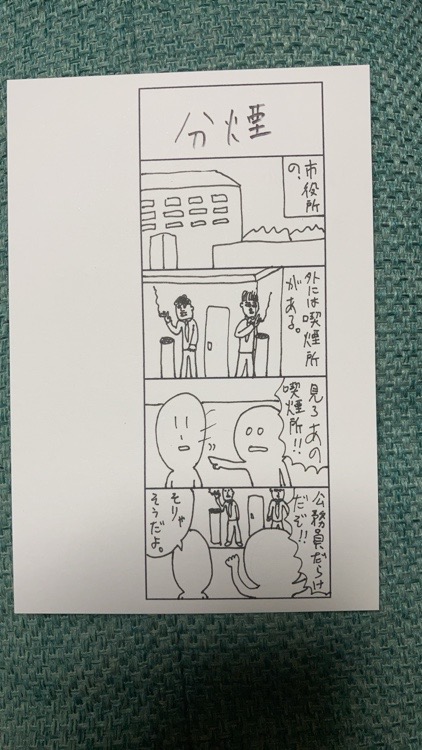 分煙
市役所
の、
外には喫煙所
がある。
見ろあの
喫煙所!!
公務員だらけ
だぞ!!
そりゃ
そうだよ。